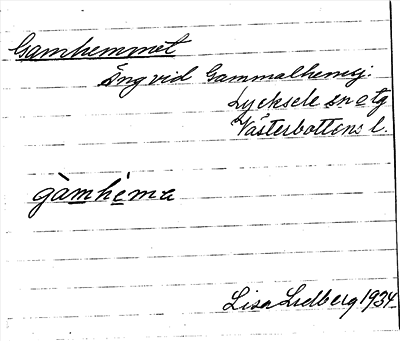 Gamhemmet
Äng vid Gammalhemsj.
Lycksele sn o tg
Västerbottens l.
gàmhèma
Lisa Lidberg 1934